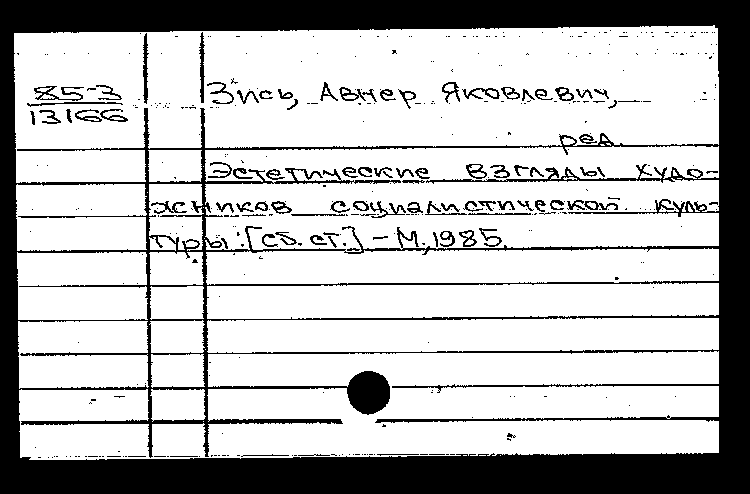 85-3
13166
Зись, Авнер Яковлевич,
ред.
Эстетические взгляды худо-
жников социалистической куль-
туры: [сб. ст.] – М, 1985.